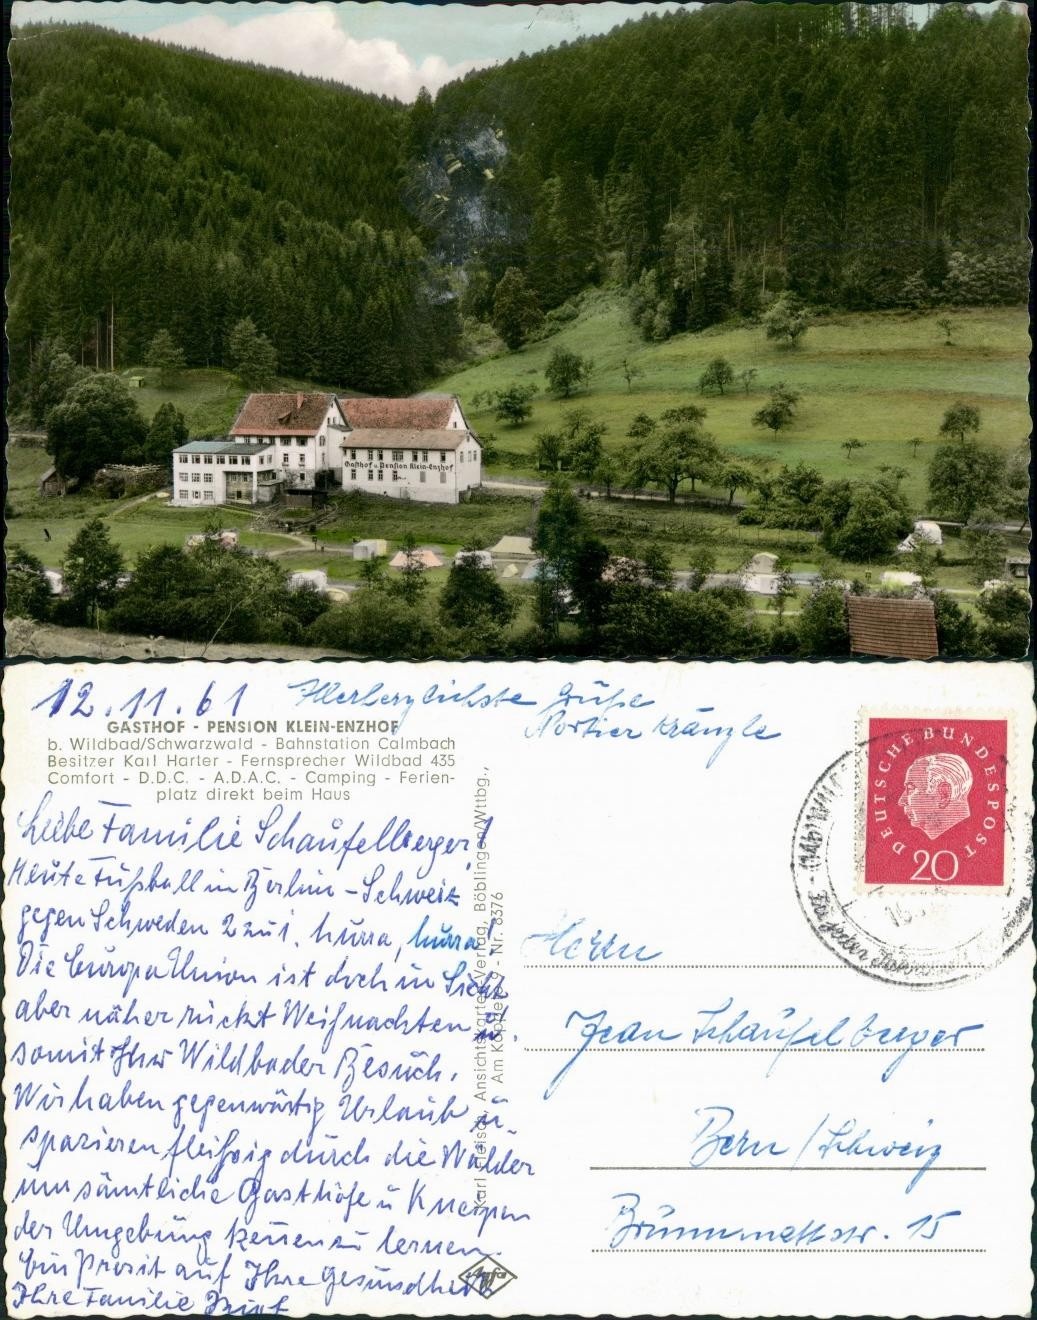 Gasthof u. Pension Klein-Enzhof
12.11.61
Allerherzlichste Grüße
Portier Kränzle
GASTHOF - PENSION KLEIN-ENZHOF
b. Wildbad/Schwarzwald - Bahnstation Calmbach
Besitzer Karl Harter - Fernsprecher Wildbad 435
Comfort - D.D.C. - A.D.A.C. - Camping - Ferien-
platz direkt beim Haus
Liebe Familie Schaufelberger!
Heute Fußball in Berlin - Schweiz
gegen Schweden 2 zu 1. hurra, hurra!
Die Europa Union ist doch in Sicht
aber näher rückt Weihnachten u.
somit Ihr Wildbader Besuch.
Wir haben gegenwärtig Urlaub u.
spazieren fleißig durch die Wälder
um sämtliche Gasthöfe u Kneipen
der Umgebung kennen zu lernen.
Ein Prosit auf Ihre Gesundheit
Ihre Familie
Karl Fleisch, Ansichtskarten-Verlag, Böblingen/Wttbg.,
Am Käppele 9 - Nr. 8376
Agfa
DEUTSCHE BUNDESPOST
20
(14b) WILDBAD
Zu jeder Jahreszeit
Herrn
Jean Schaufelberger
Bern / Schweiz
Brunnmattstr. 15